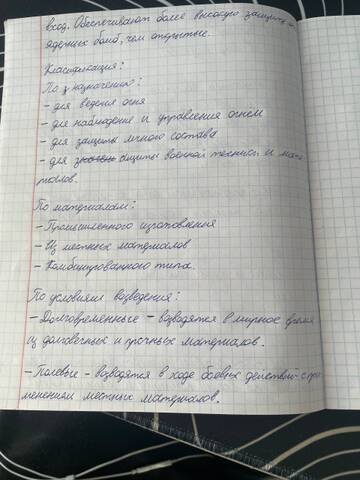 вход. Обеспечивают более высокую защиту от
ядерных бомб, чем открытые.
Классификация:
По назначению:
- для веденя огня
- для наблюдение и управления огнем
- для защиты личного состава
- для защиты военной техники и мате-
риалов.
По материалам:
- Промышленного изготовления
- Из местных материалов
- Комбинированного типа.
По условиям возведения:
- Долговременные - возводятся в мирное время
из долговечных и прочных материалов.
- Полевые - возводятся в ходе боевых действий с при-
менением местных материалов.